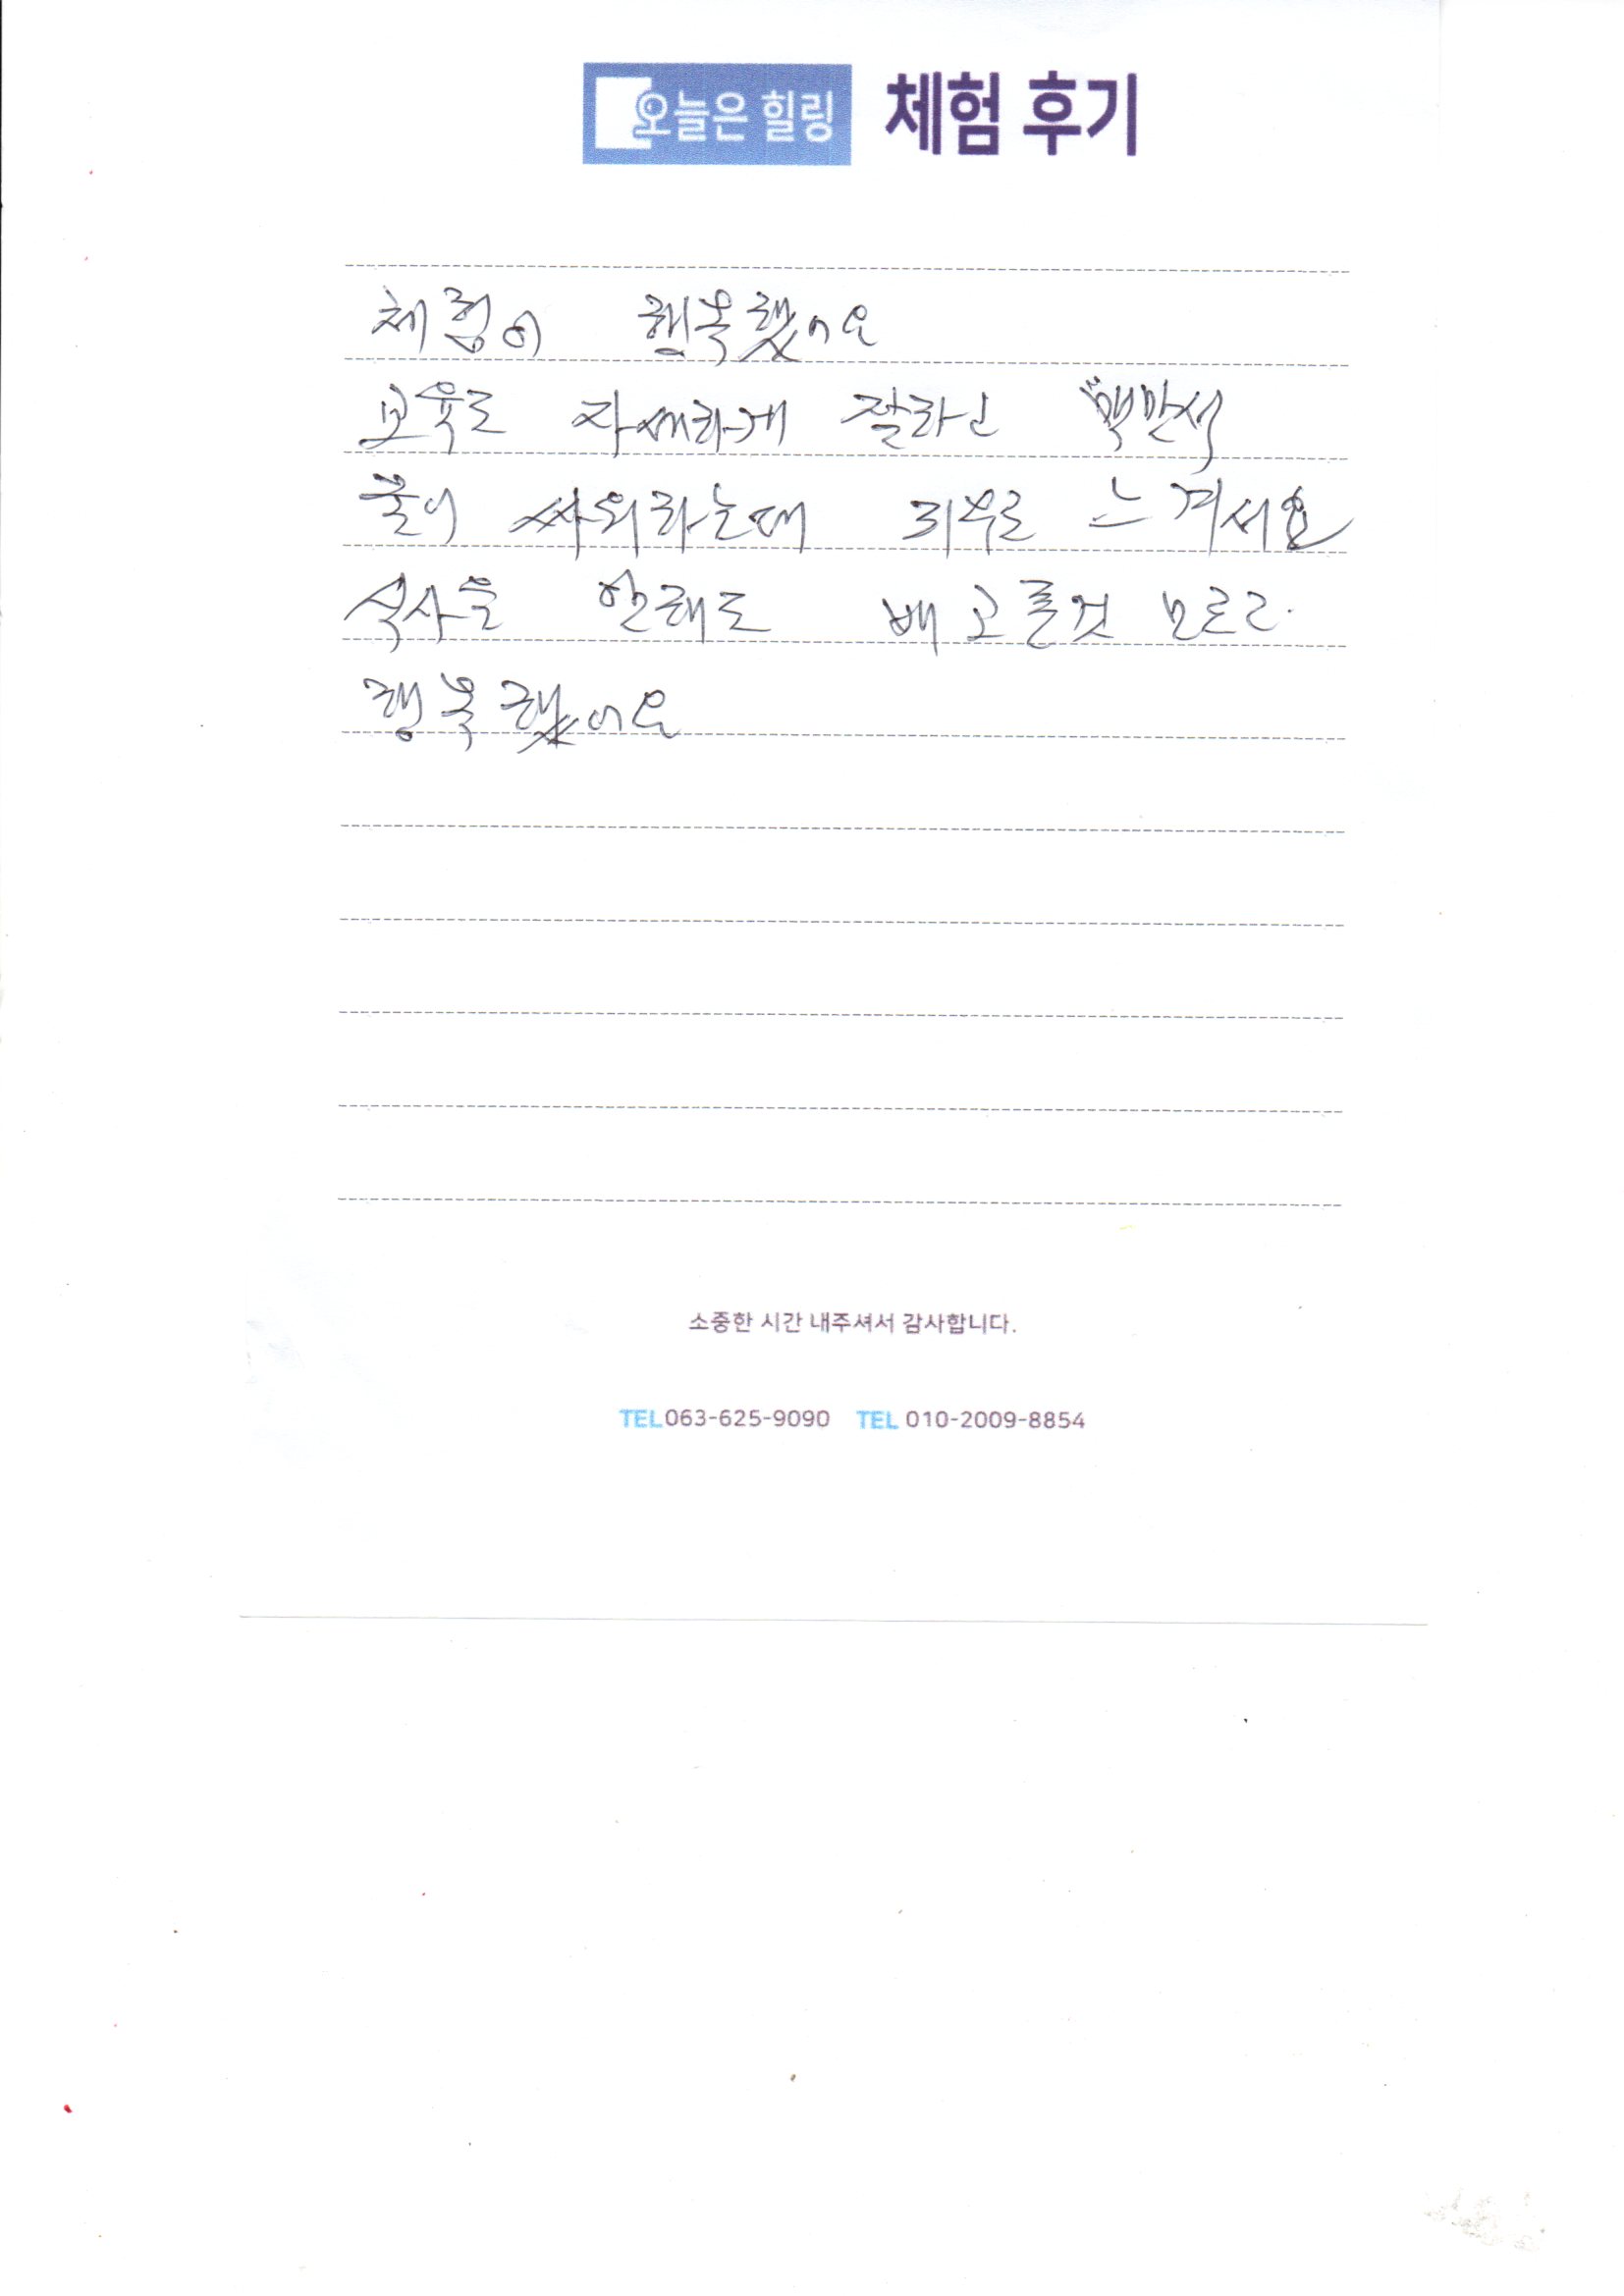 오늘은 힐링 체험 후기
체험이 행복했어요
교육도 자세하게 잘하신 백만석
꿀이 싸워라는데 피부로 느껴서요
식사를 안해도 배고픈것 모르고.
행복했어요
소중한 시간 내주셔서 감사합니다.
TEL 063-625-9090 TEL 010-2009-8854